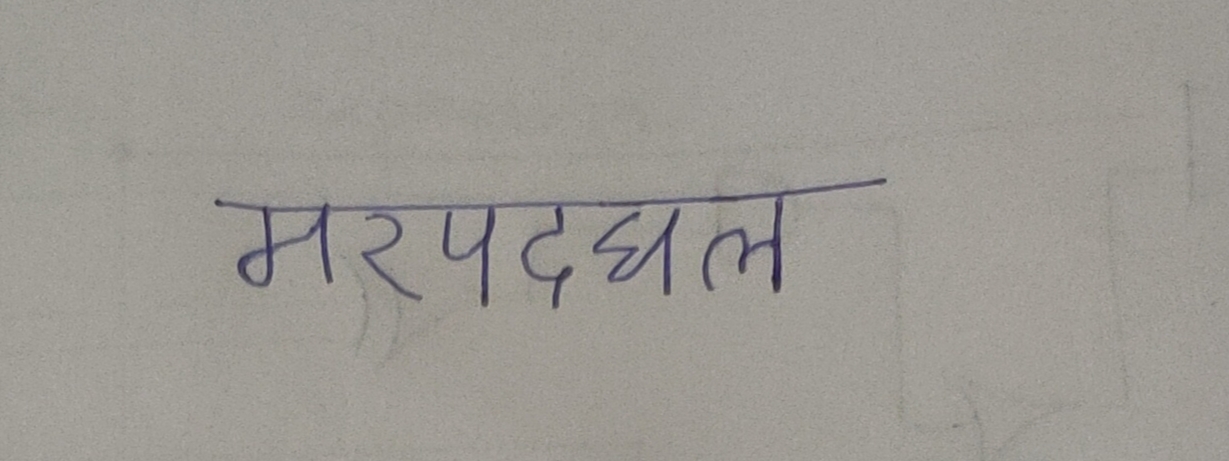 मरपदघल